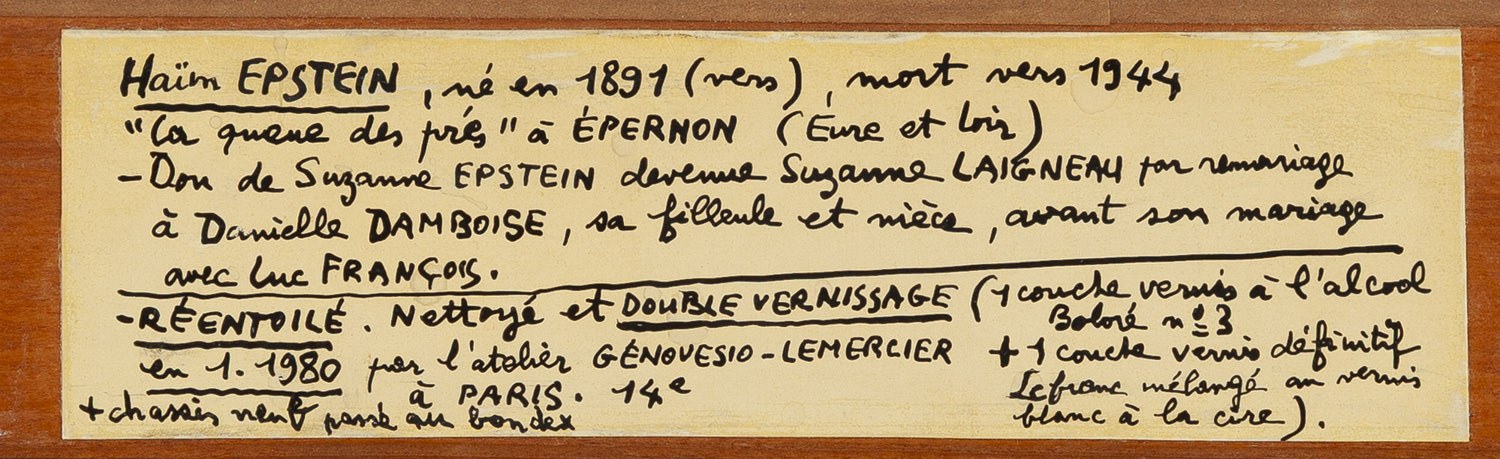 Haïm EPSTEIN, né en 1891 (vers), mort vers 1944
"La queue des prés" à ÉPERNON (Eure et Loir)
- Don de Suzanne EPSTEIN devenue Suzanne LAIGNEAU par remariage
à Danielle DAMBOISE, sa filleule et nièce, avant son mariage
avec Luc FRANÇOIS.
- RÉENTOILÉ. Nettoyé et DOUBLE VERNISSAGE (1 couche vernis à l'alcool
Boloré n° 3
en 1. 1980 par l'atelier GÉNOVESIO - LEMERCIER + 1 couche vernis définitif
à PARIS. 14e Lefranc mélangé au vernis
+ chassis neuf passé au bondex blanc à la cire).